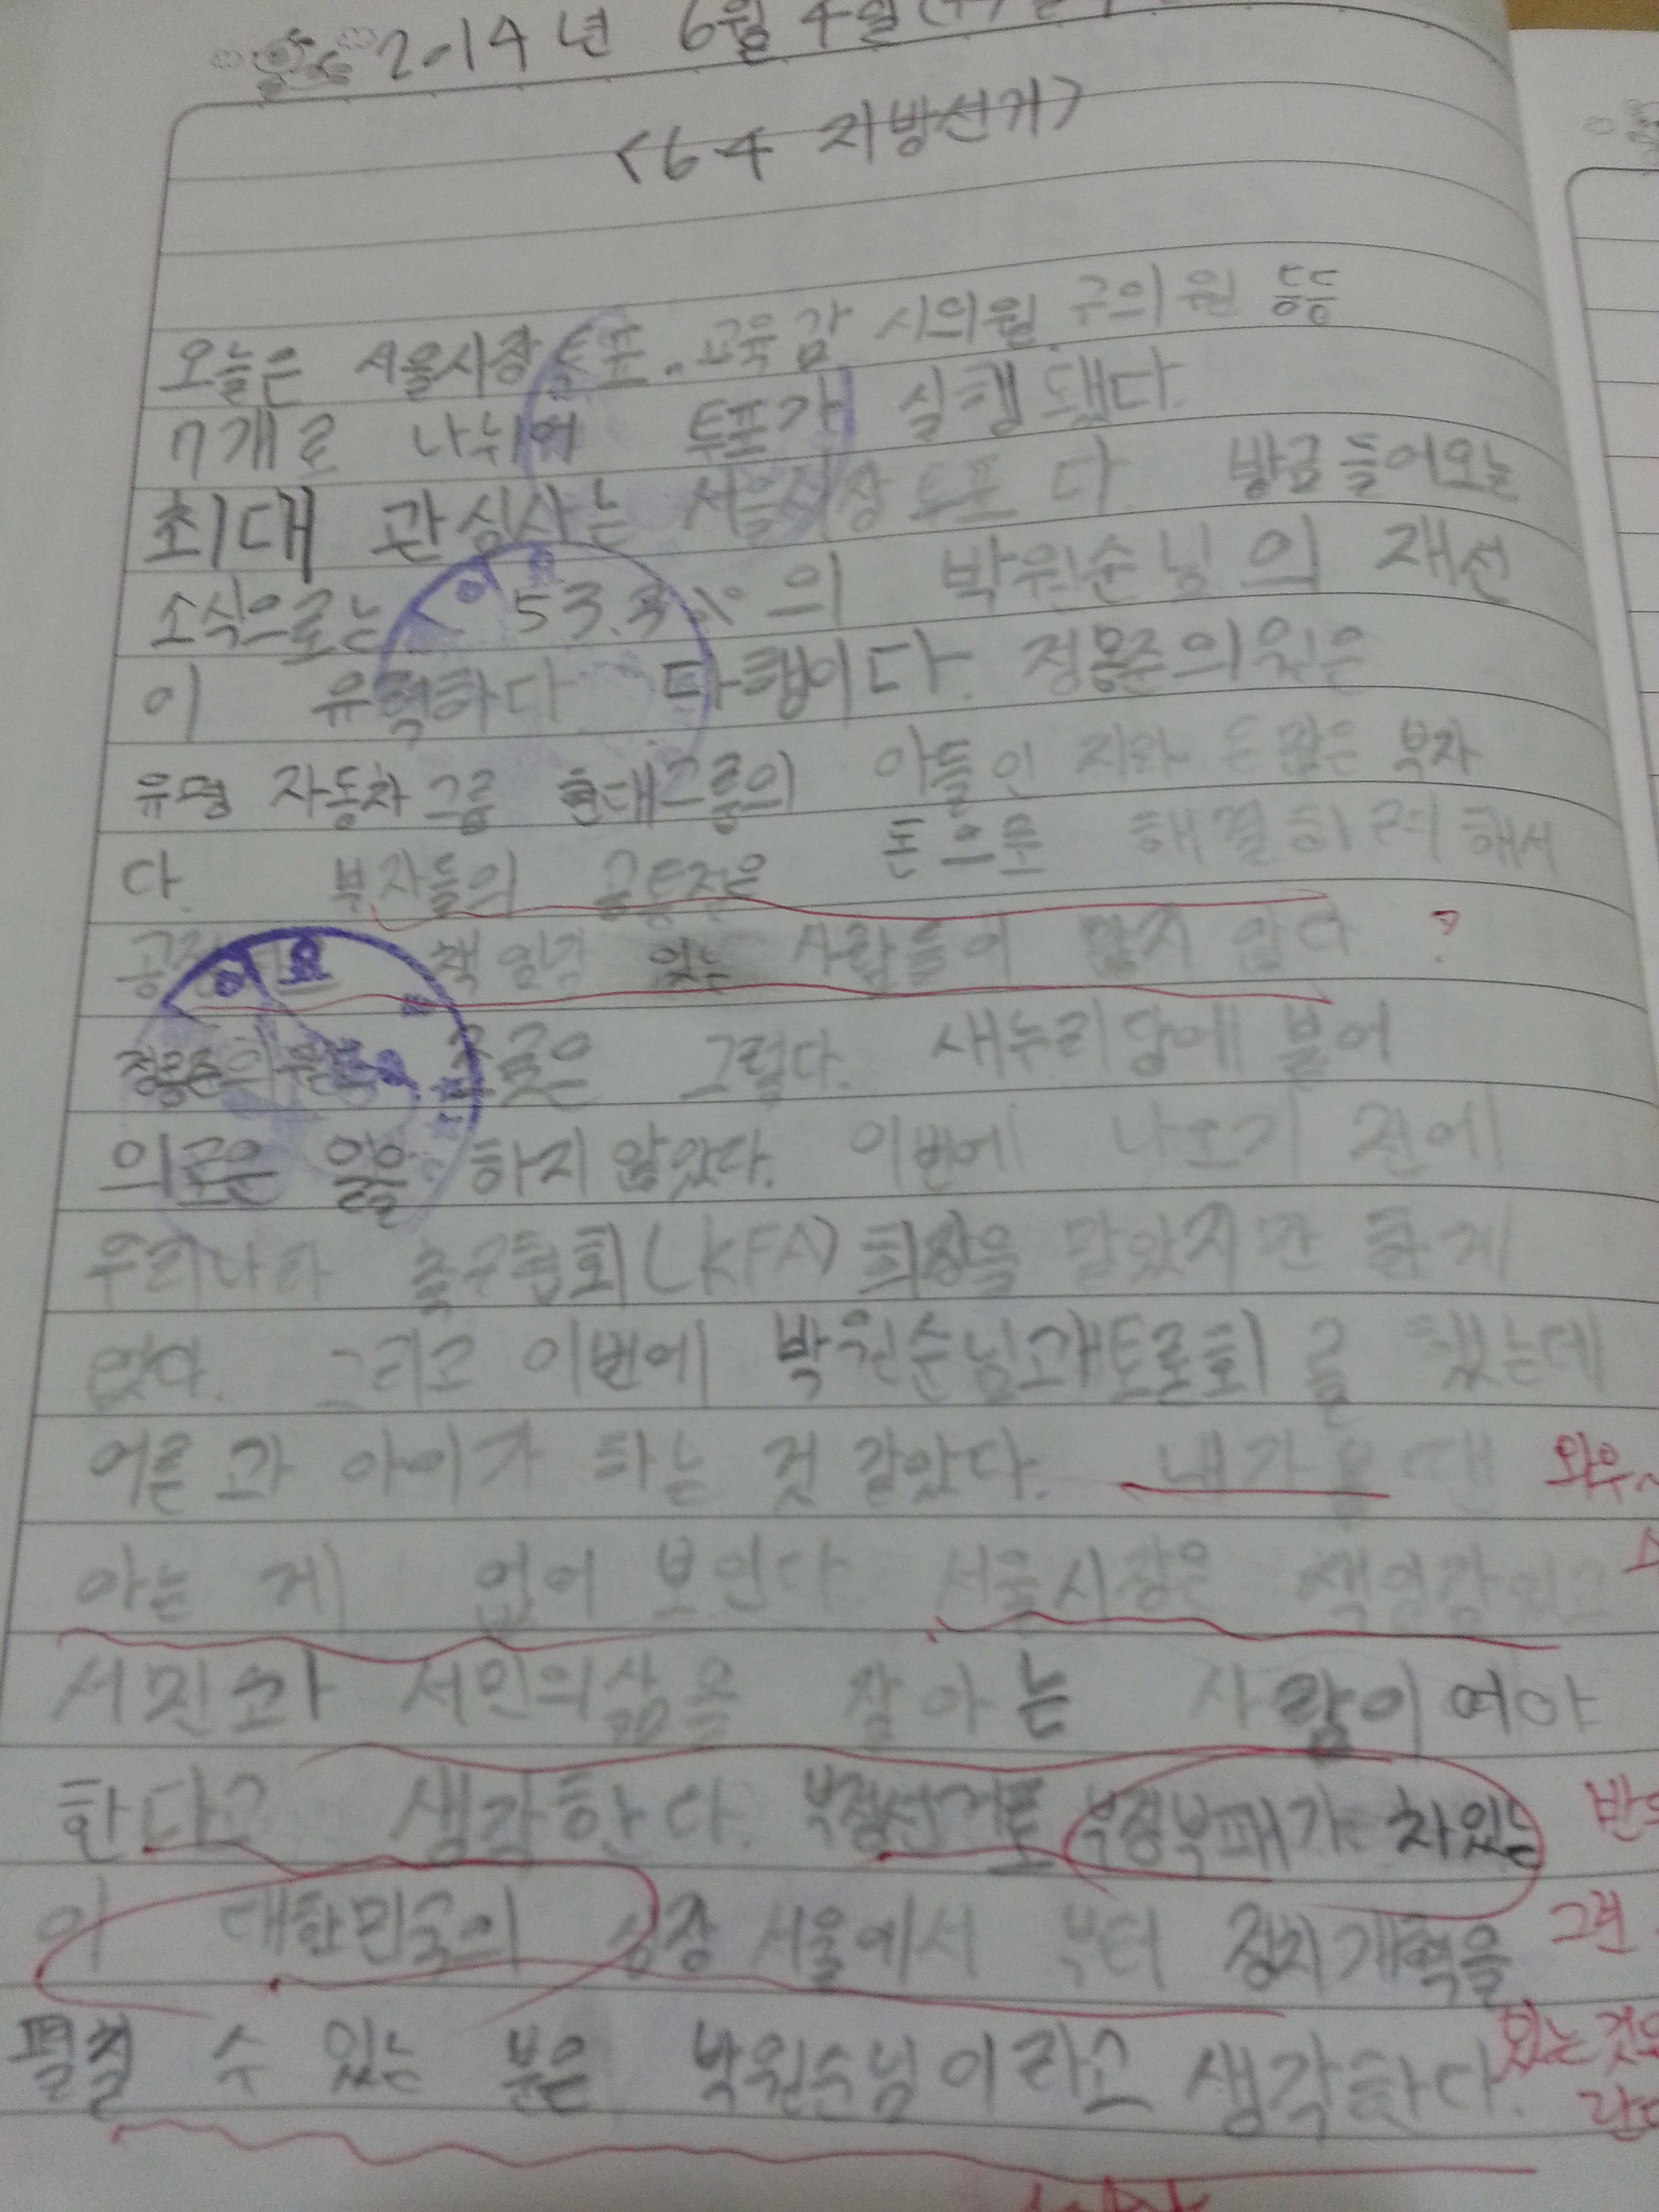 2014년 6월 4일
<64 지방선거>
오늘은 서울시장 투표, 교육감 시의원 구의원 등등
7개로 나뉘어 투표가 실행됐다.
최대 관심사는 서울시장 투표다. 방금 들어오는
소식으로는 53.3%의 박원순님의 재선
이 유력하다. 다행이다. 정몽준의원은
유명 자동차그룹 현대그룹의 아들인 지라 돈 많은 부자
다. 부자들의 공통점은 돈으로 해결하려 해서
책임감 있는 사람들이 많지 않다 ?
정몽준의원 그렇다. 새누리당에 붙어
의로운 일을 하지 않았다. 이번에 나오기 전에
우리나라 축구협회(KFA) 회장을 맡았지만 한게
없다. 그리고 이번에 박원순님과 토론회를 했는데
어른과 아이가 하는 것 같았다. 내가 볼 땐 와우~
아는 게 없어 보인다 서울시장은 책임감있고
서민과 서민의 삶을 잘 아는 사람이여야
한다고 생각한다. 부정선거로 부정부패가 차있는
이 대한민국의 심장 서울에서 부터 정치개혁을 그런
펼칠 수 있는 분은 박원순님이라고 생각한다. 있는 것